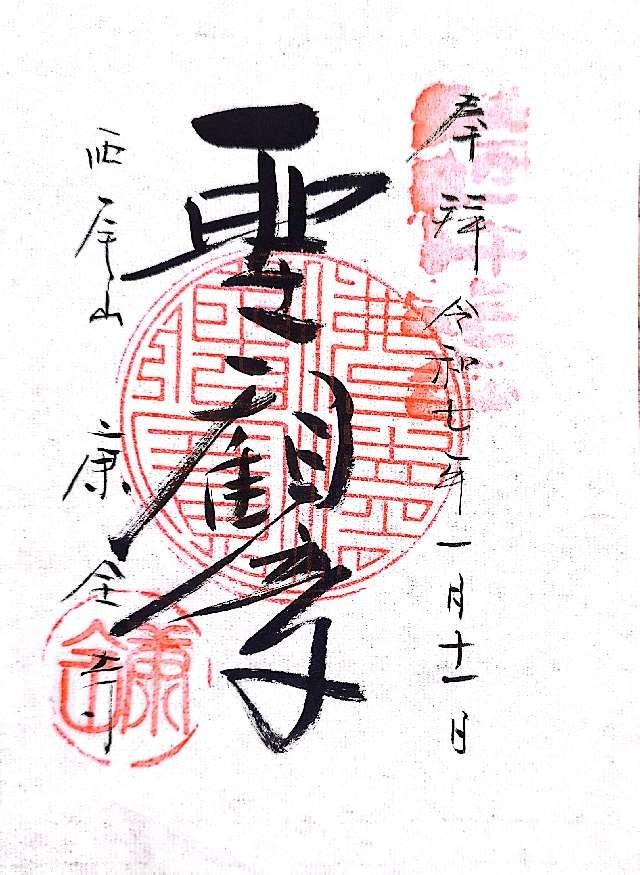 奉拝 令和七年一月十一日
聖観音
西尾山 康全寺